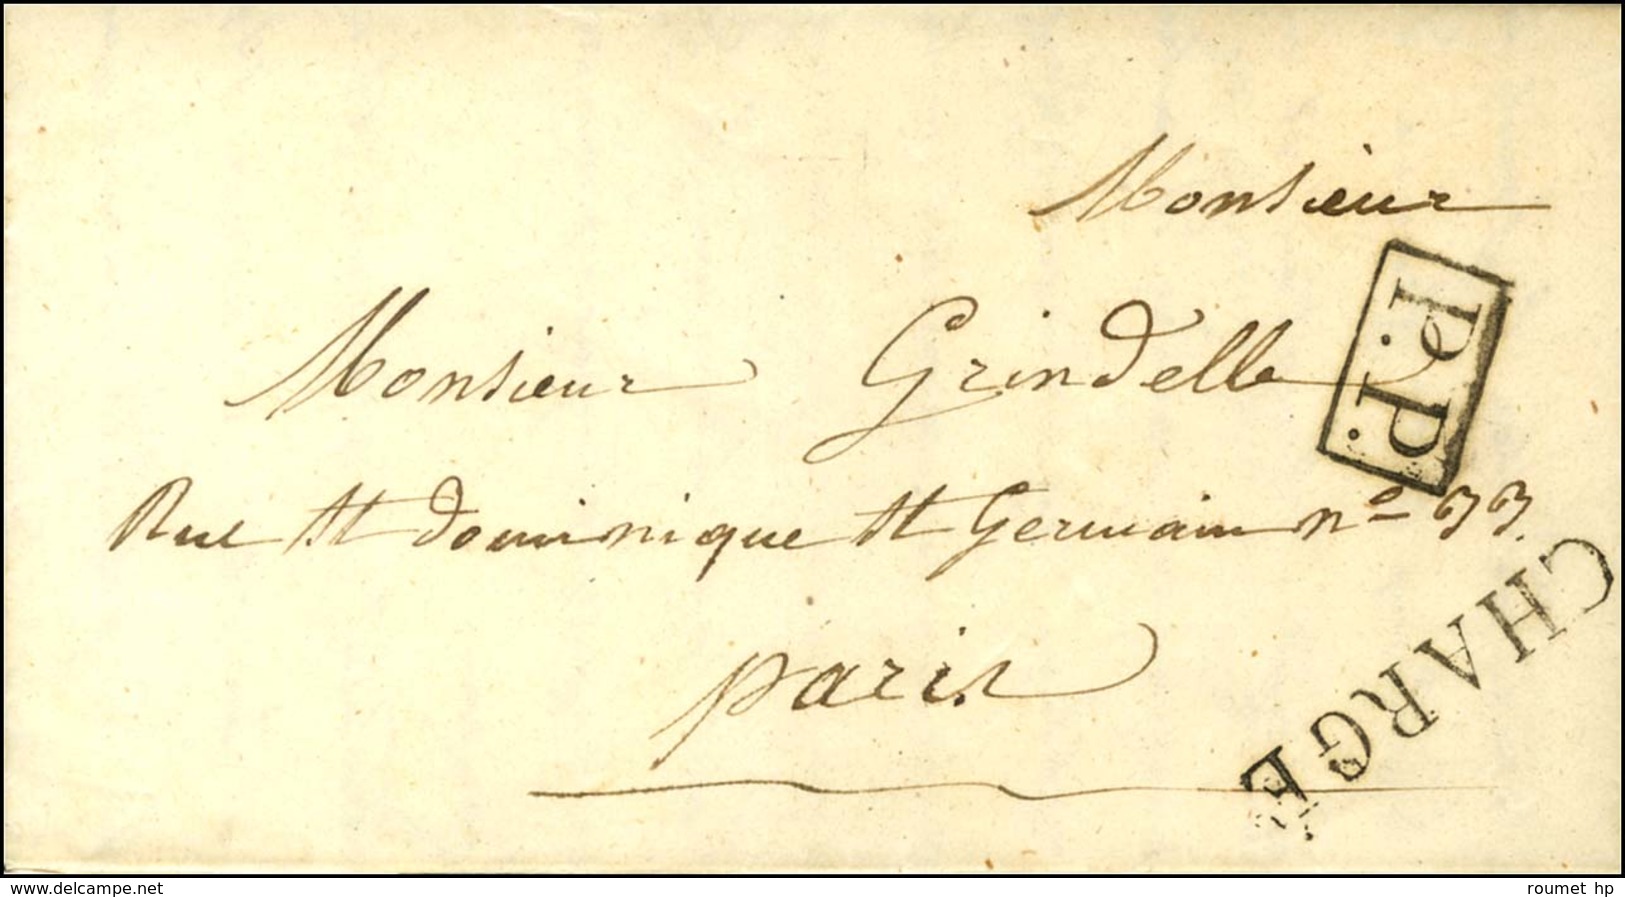 Monsieur
P.P.
Monsieur Grindelle
Rue St dominique St Germain n° 33.
CHARGÉ
paris
www.delcampe.net
roumet hp